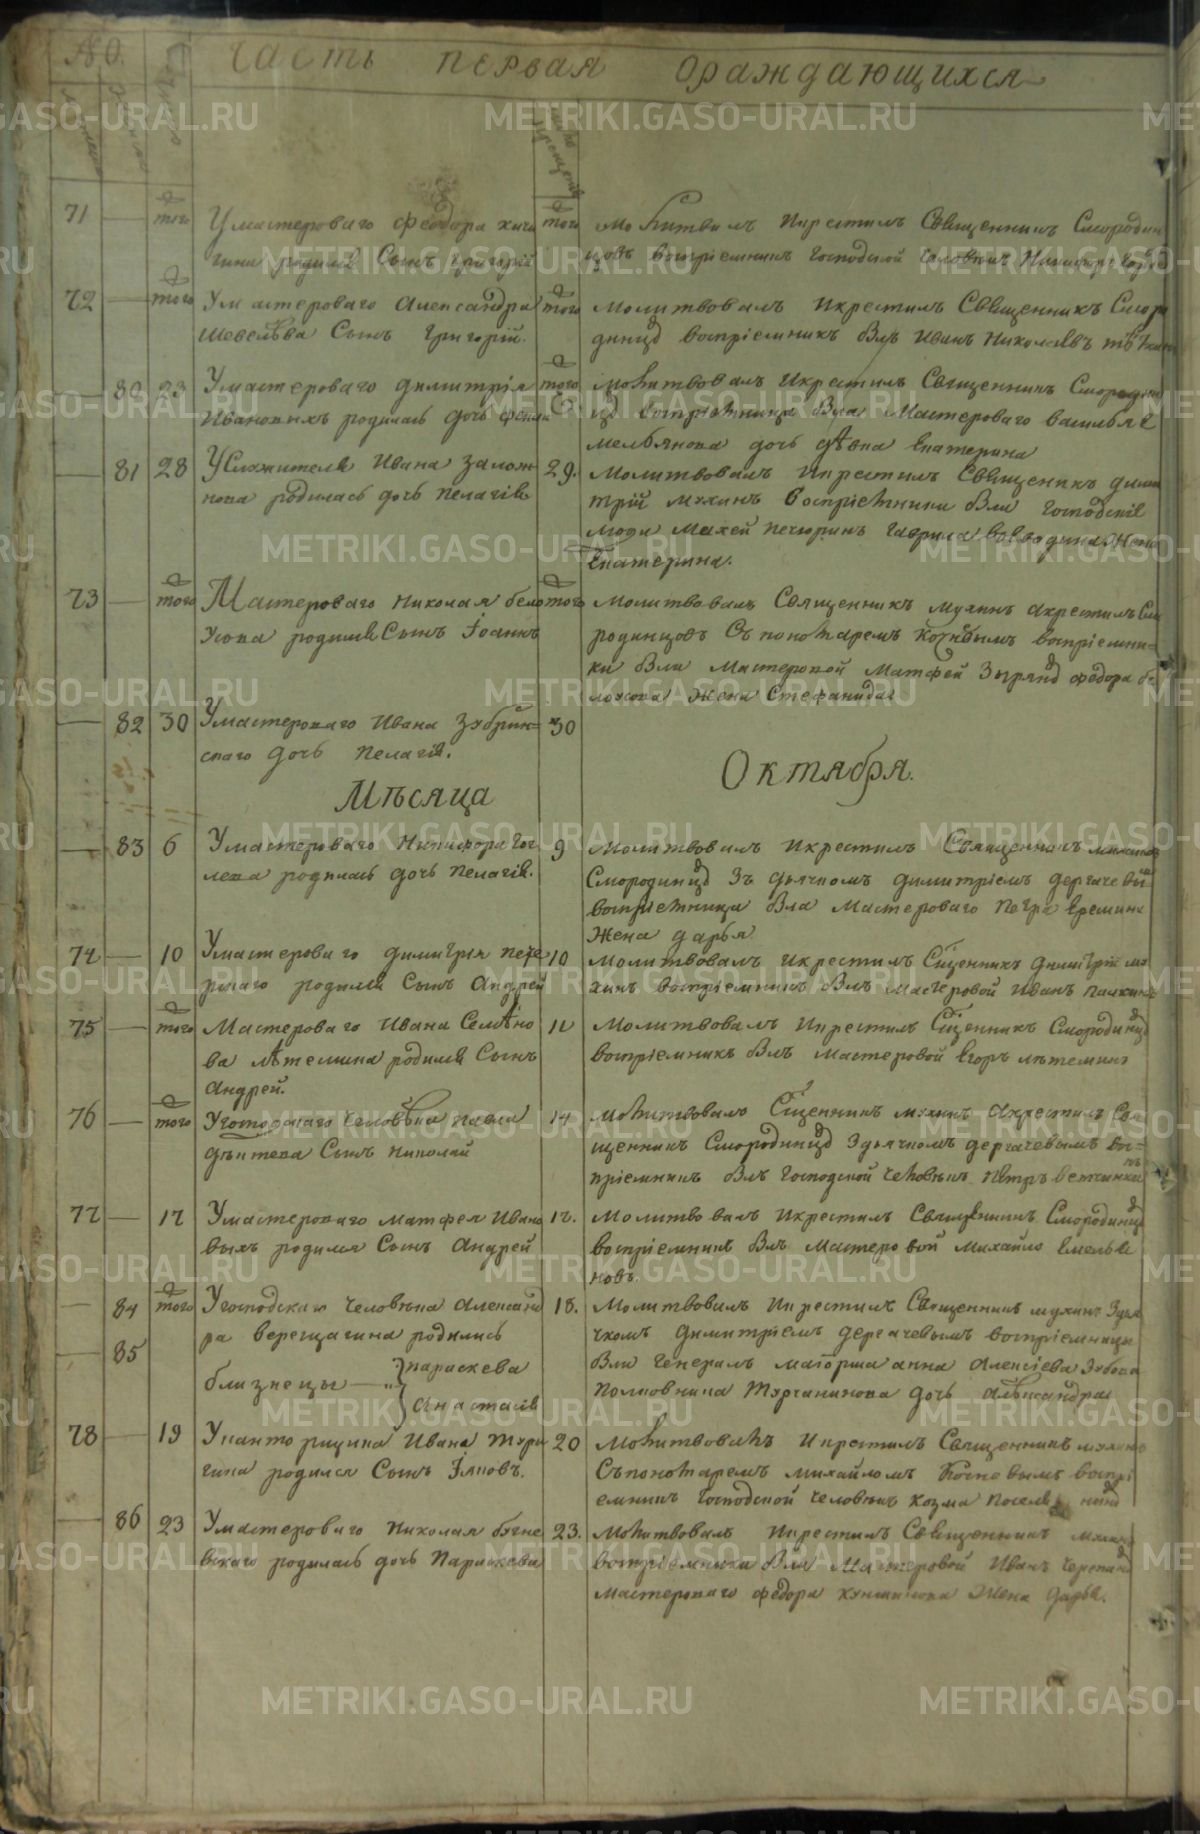 №
Часть первая ораждающихся
71 — того Умастероваго Феодора
родился Сынъ Григорій
того молитвовалъ Икрестилъ Священникъ Смородин
цовъ воспріемникъ Господской человекъ
72 — того Умастероваго Александра
Шевелѣва Сынъ Григорій.
того молитвовалъ Икрестилъ Священникъ Сморо
динцд воспріемникъ Былъ Иванъ Николаевъ
80 23 Умастероваго димитрія
Ивановыхъ родилась дочь
того молитвовалъ Икрестилъ Священникъ Смородин
цд воспріемница Была Мастероваго василья Е
мельянова дочь дѣвка Екатерина
81 28 Услужителя Ивана
нова родилась дочь пелагія
29. молитвовалъ Икрестилъ Священникъ дими
трій мухинъ Воспріемники Были господскіе
люди Макей печюринъ гаврила воеводина жена
Екатерина.
73 — того Мастероваго николая бело
усова родился Сынъ Іоаннъ
того молитвовалъ Священникъ мухинъ акрестилъ Смо
родинцовъ Съ понотаремъ воспріемни-
ки Были Мастеровой Матфей Зырянд федора бе
лоусова жена Стефанида
82 30 Умастероваго Ивана Зубрин-
скаго дочь пелагія.
30
Мѣсяца Октября.
83 6 Умастероваго Никифора гог
лева родилась дочь пелагія.
9 молитвовалъ Икрестилъ Священникъ
Смородинцд Зъ дьячкомъ димитріемъ дергачевы
воспріемница Была Мастероваго петра Еремина
жена дарья
74 — 10 Умастероваго димитрія пече
рскаго родился Сынъ Андрей
10 молитвовалъ Икрестилъ Сщенникъ димитрій му
хинъ воспріемникъ Былъ мастеровой Иванъ палкинъ
75 — того Мастероваго Ивана Селѣно
ва лѣтемина родился Сынъ
Андрей.
11 молитвовалъ Икрестилъ Сщенникъ Смородинцд
воспріемникъ Былъ мастеровой Егоръ лѣтеминъ
76 — того Угосподскаго человѣка павла
дѣнтева Сынъ николай
14 молитвовалъ Сщенникъ мухинъ Акрестилъ Свя
щенникъ Смородинцд Здьячкомъ дергачевымъ вос-
пріемникъ Былъ господской человѣкъ Петръ ветчинки
нъ
77 — 17 Умастероваго матфея Ивано
выхъ родился Сынъ Андрей
17. молитвовалъ Икрестилъ Священникъ Смородинцд
воспріемникъ Былъ мастеровой михайло Емелья
новъ
84 того Угосподскаго человѣка Александ
ра верещагина родились
85 близнецы — параскева
Анастасія
18. молитвовалъ Икрестилъ Священникъ мухинъ Здья
чкомъ димитріемъ дергачевымъ воспріемницы
Были генералъ маіорша анна Алексіева Зубова
полковника Турчанинова дочь Александра
78 — 19 Уканторщика Ивана тури
гина родился Сынъ Іяковъ.
20 молитвовалъ Икрестилъ Священникъ мухинъ
Съпонотаремъ михайломъ воспрі
емникъ господской человѣкъ козма
86 23 Умастероваго николая
вскаго родилась дочь Параскева
23. молитвовалъ Икрестилъ Священникъ мухинъ
воспріемники Были Мастеровой Иванъ Черепанд
мастероваго федора жена дарья.